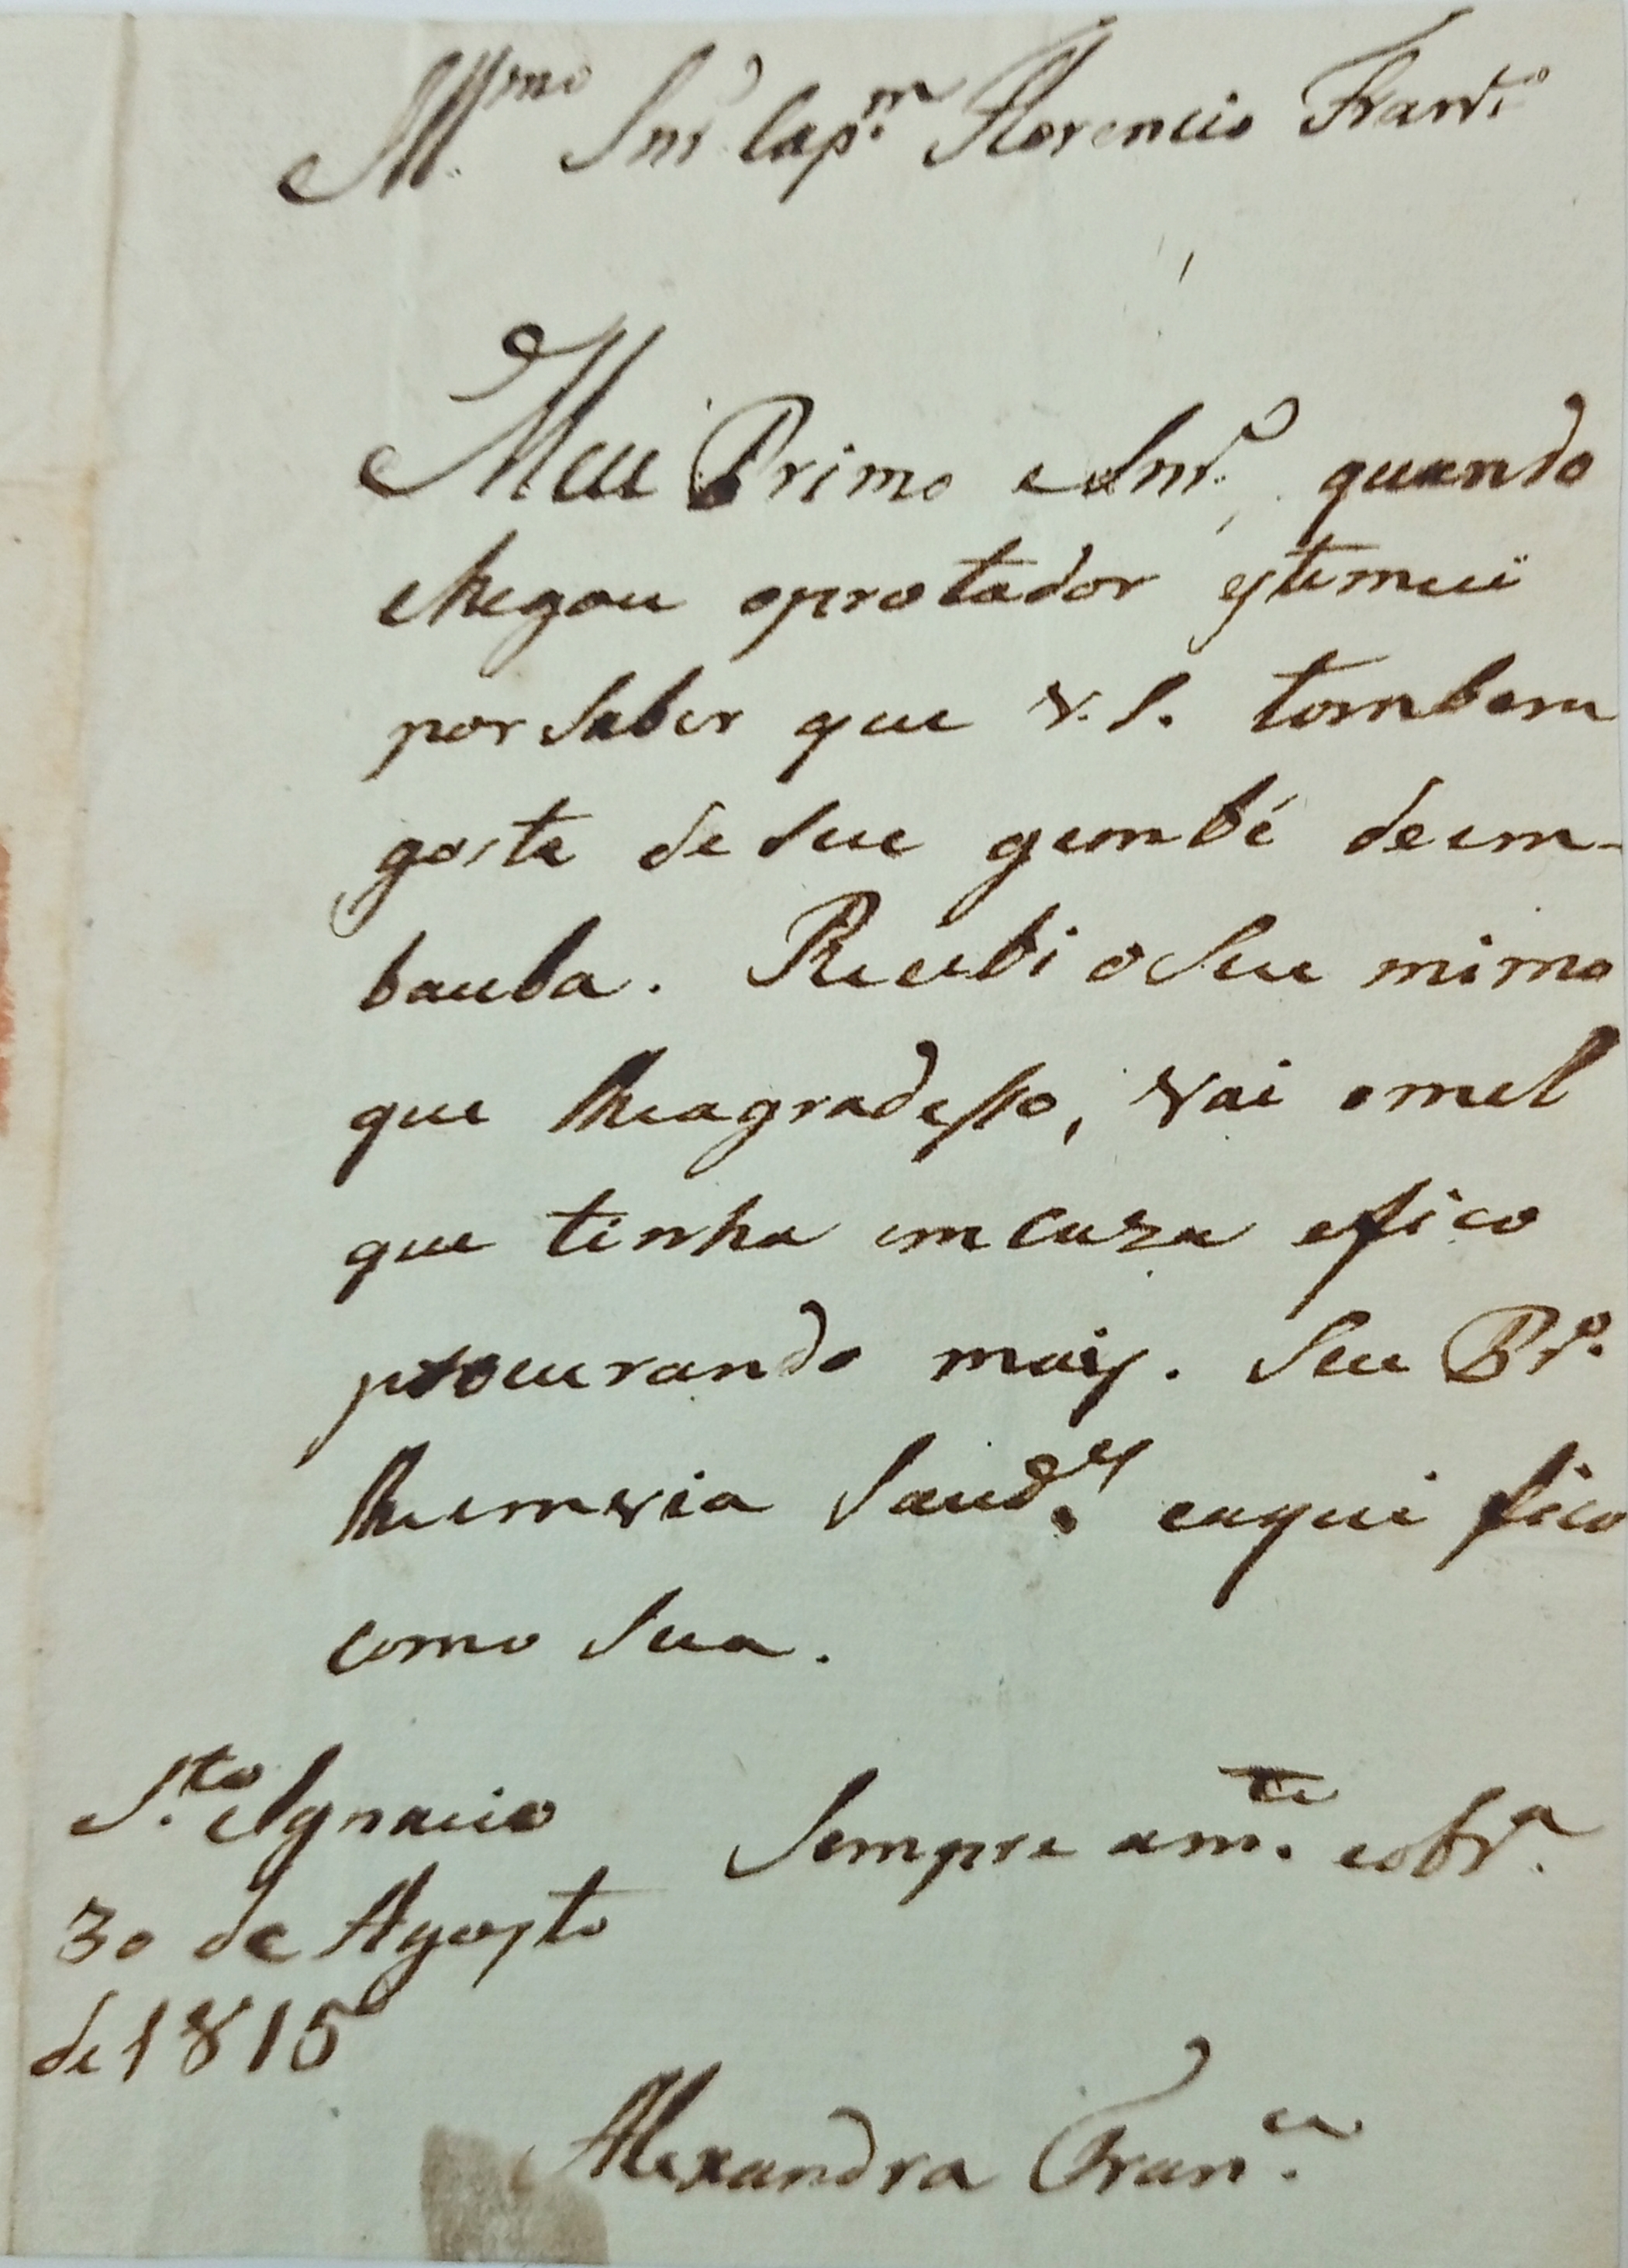 Illmo Snr Capm. Florencio Franco
Meu Primo e Snr. quando
chegou oprotador estemuï
por Saber que v. S. tombem
gosta de Seu gembé deim-
bauba. Recebi o Seu mimo
que lheagradesso, vai omel
que tinha emcaza efico
procurando mais. Seu Bro.
lhemvia Saudes. eaqui fico
como Sua.
Sto. Ignacio Sempre amte. eobra.
30 de Agosto
de 1815
Alexandra Franca.